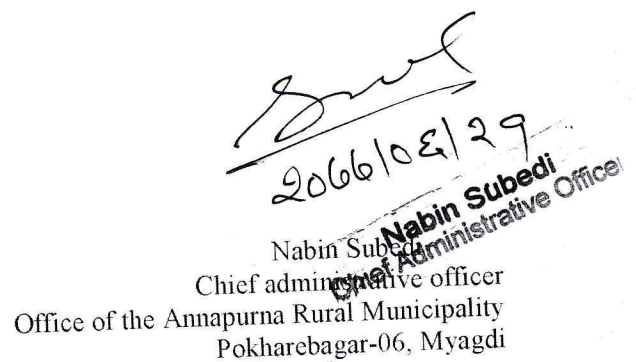 २०७७|०६|२९
Nabin Subedi
Chief Administrative Officer
Nabin Subedi
Chief administrative officer
Office of the Annapurna Rural Municipality
Pokharebagar-06, Myagdi